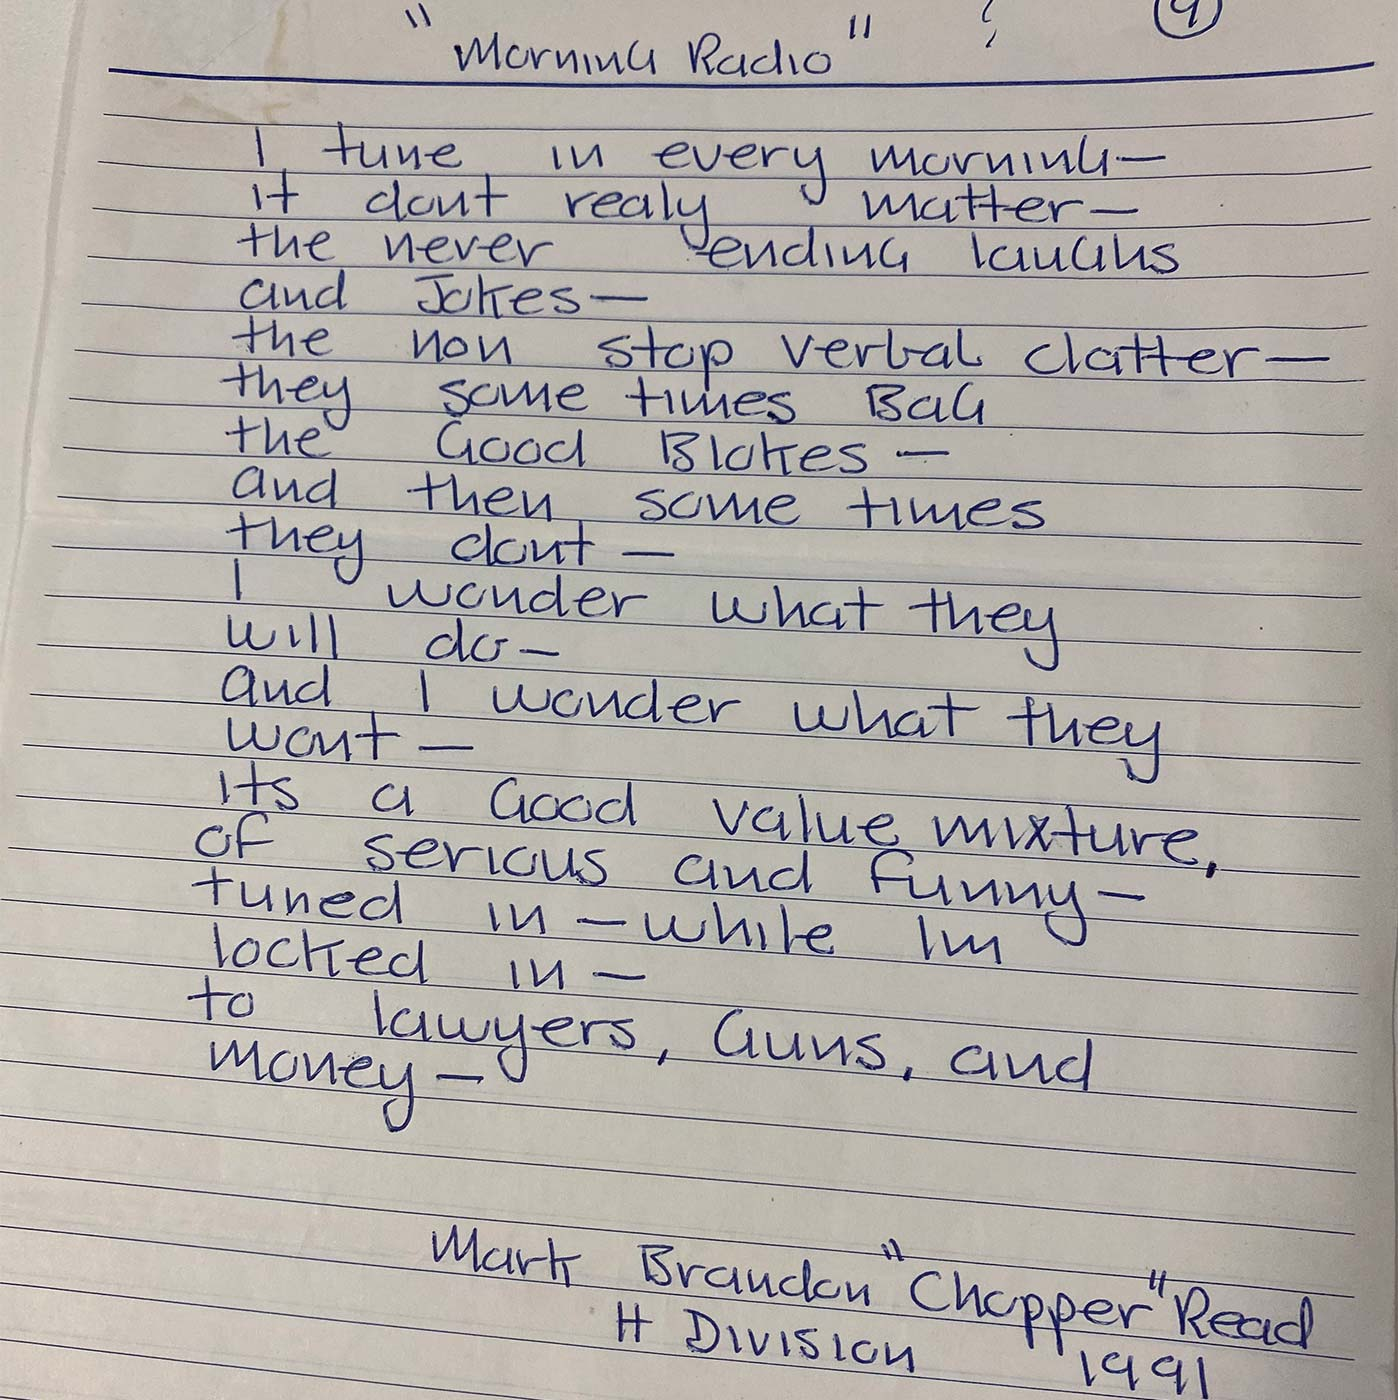 "Morning Radio" 9
I tune in every morning—
it dont realy matter—
the never ending laughs
and Jokes—
the non stop verbal clatter—
they some times Bag
the Good Blokes—
and then some times
they dont—
I wonder what they
will do—
and I wonder what they
wont—
its a Good value mixture,
of serious and funny—
tuned in—while Im
locked in—
to lawyers, Guns, and
money—
Mark Brandon "Chopper" Read
H Division 1991